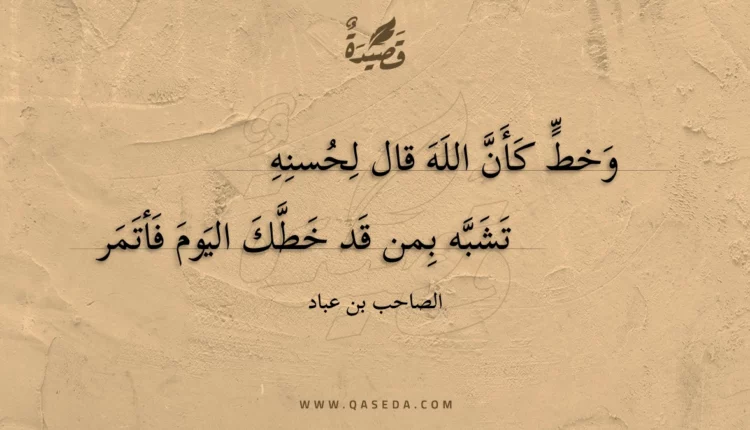 قَصِيدَةٌ
وَخطٍّ كَأَنَّ اللَهَ قال لِحُسنِهِ
تَشَبَّه بِمن قَد خَطَّكَ اليَومَ فَأتَمَر
الصاحب بن عباد
WWW.QASEDA.COM